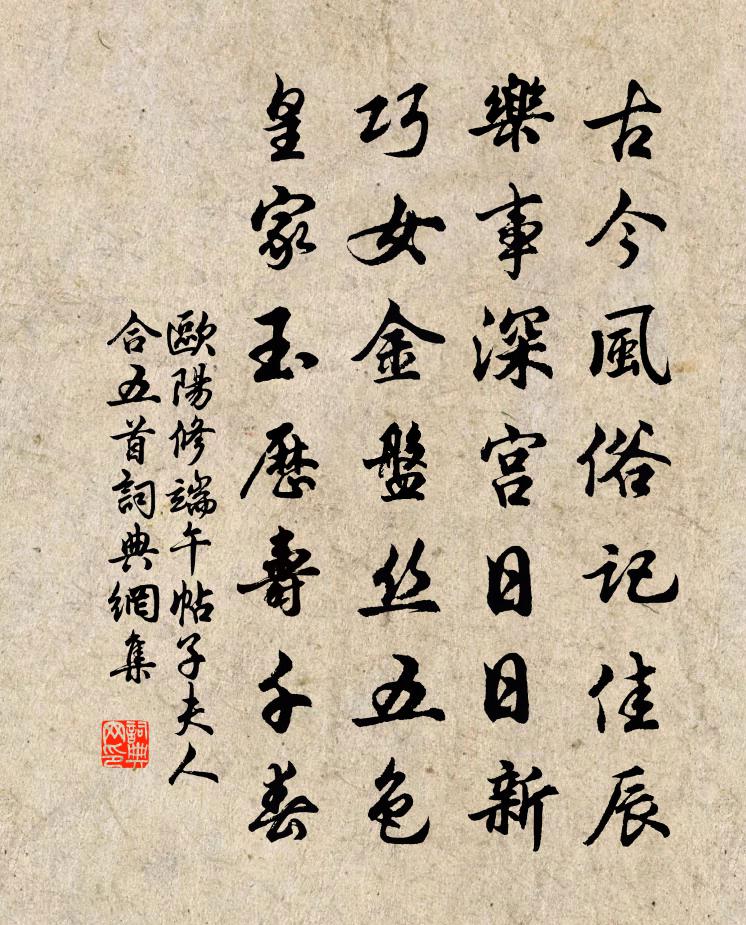 古今風俗記佳辰
樂事深宫日日新
巧女金盤丝五色
皇家玉歷壽千春
歐陽修端午帖子夫人
合五首詞典網集
詞典網印